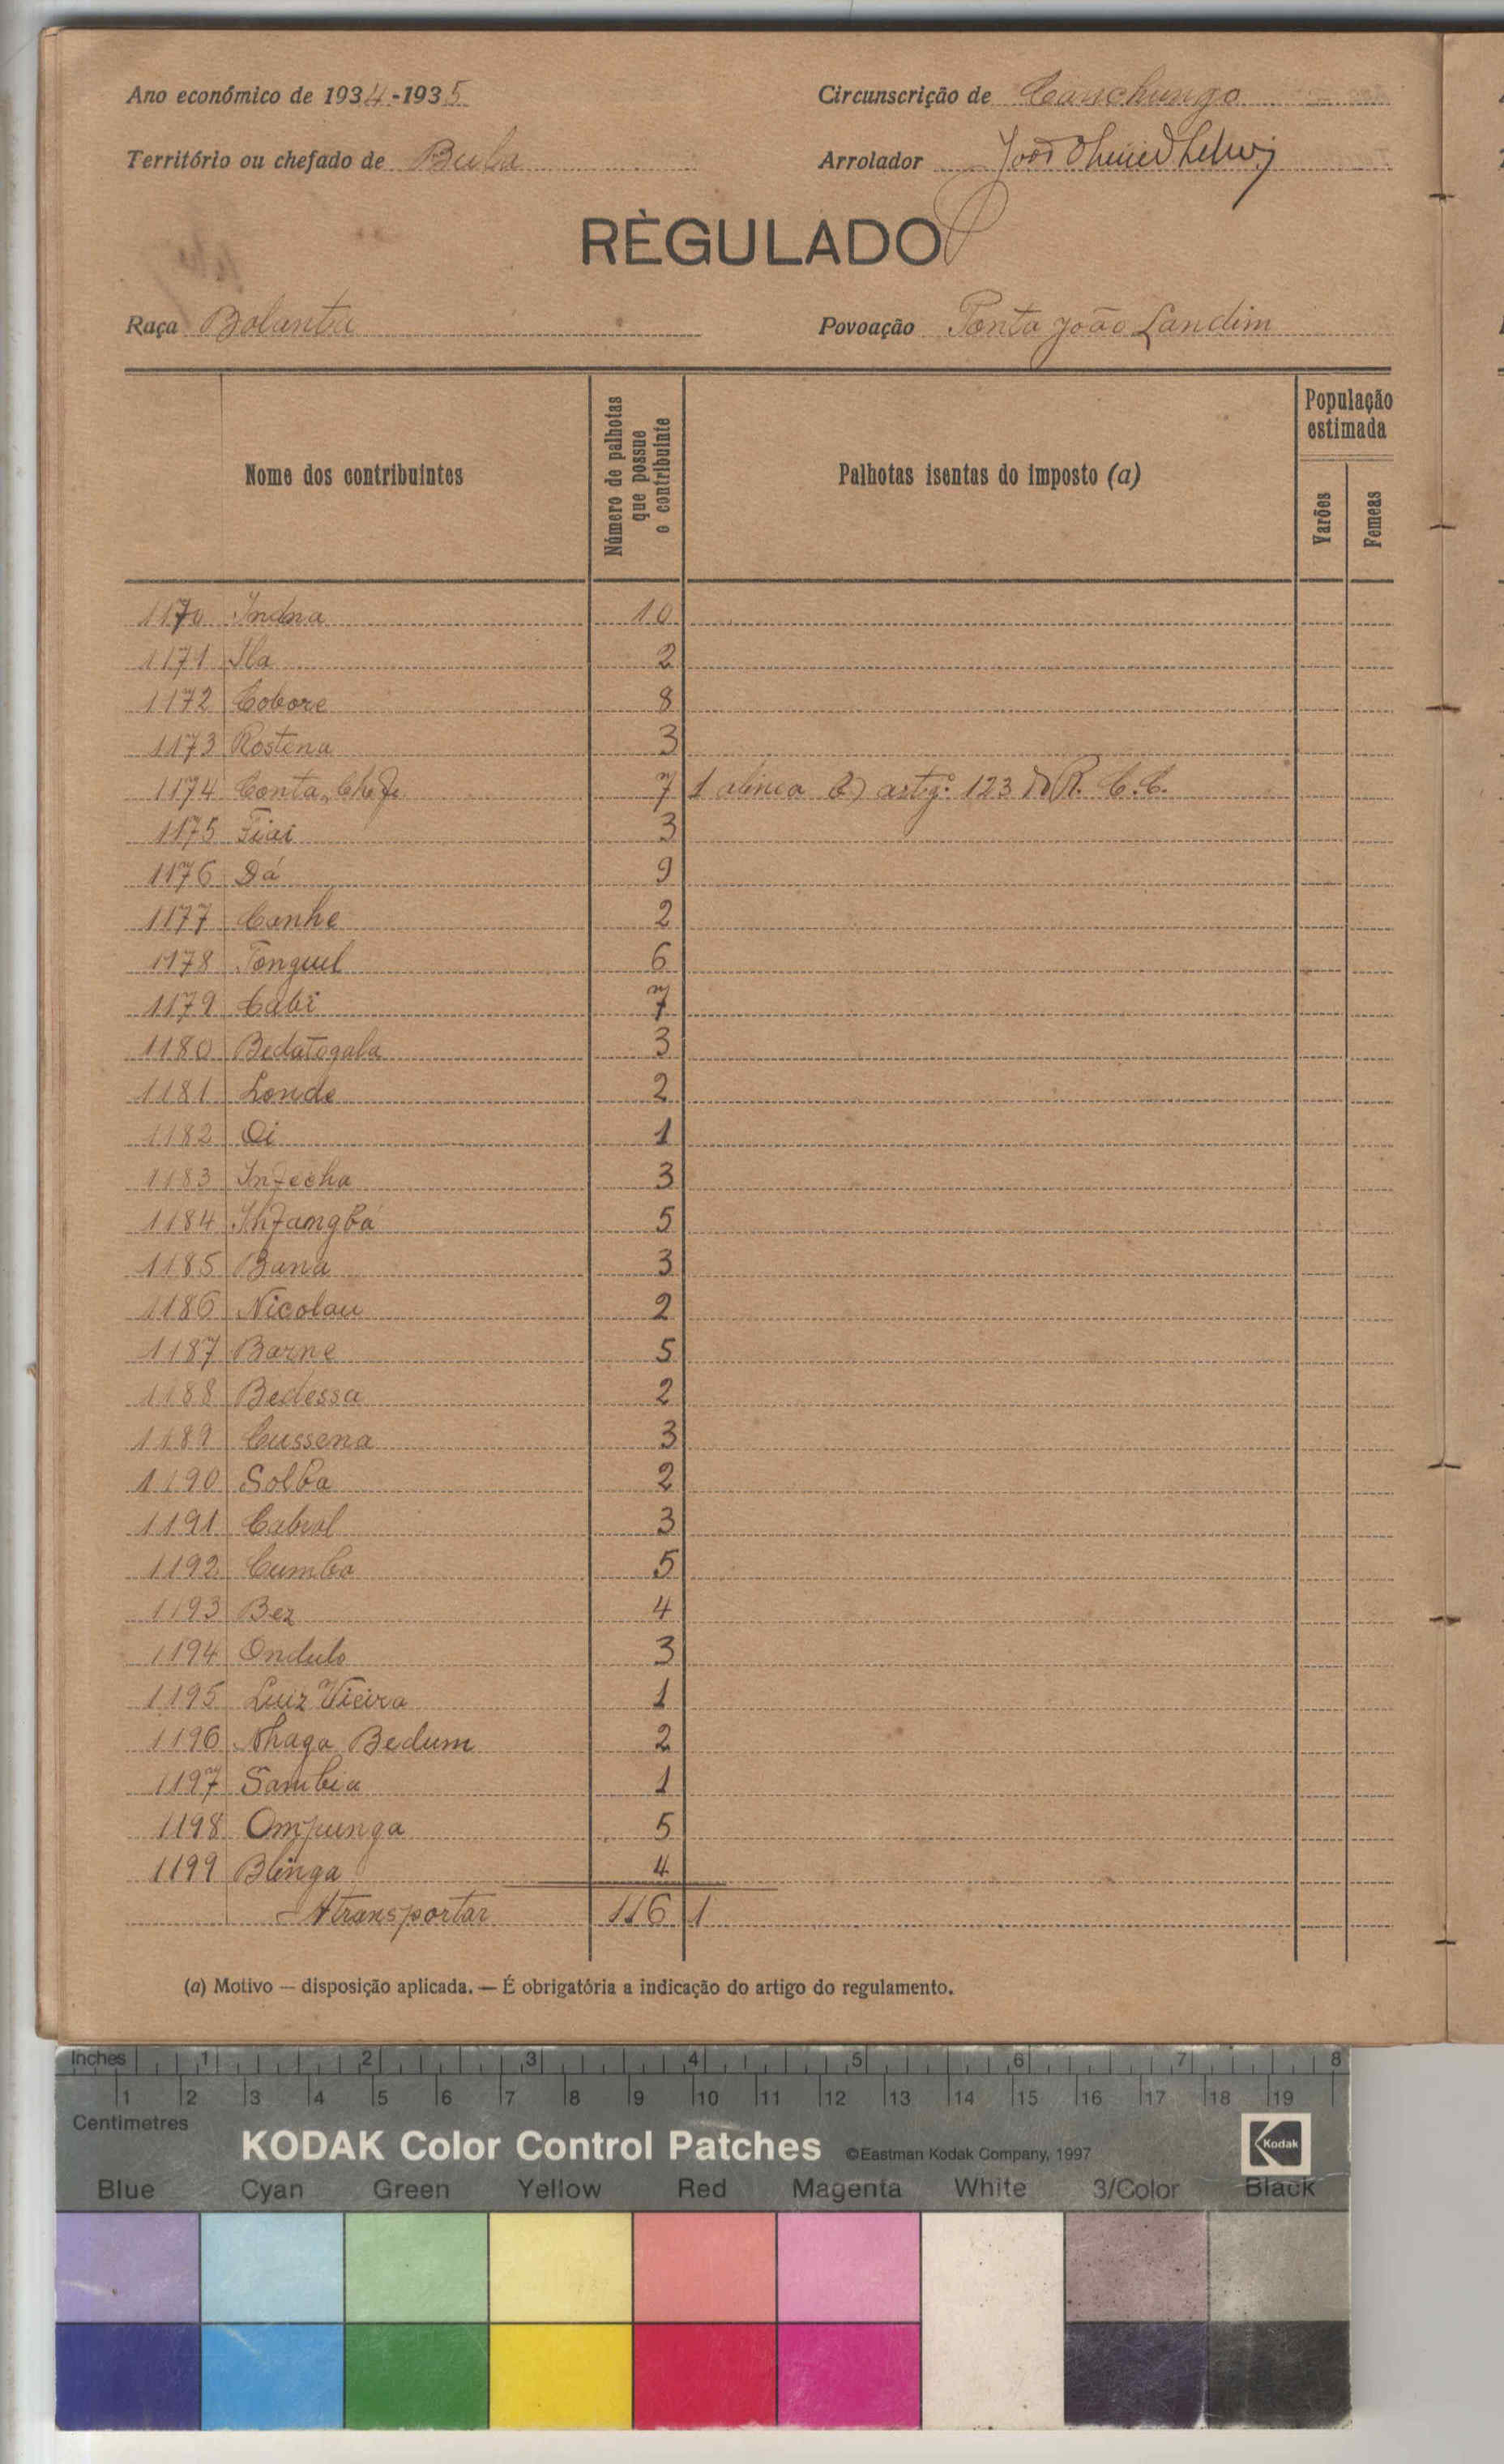 Ano económico de 1934-1935
Circunscrição de Canchungo
Território ou chefado de Bula
Arrolador João
RÈGULADO
Raça Bolanta
Povoação Ponta João Landim
Nome dos contribuintes
Número de palhotas que possue o contribuinte
Palhotas isentas do imposto (a)
População estimada
Varões
Femeas
1170 Indna 10
1171 Ila 2
1172 Cobore 8
1173 Rostena 3
1174 Conta, Chefe 7 1 alinea b) artgº 123 do R. C. C.
1175 Fiai 3
1176 Dá 9
1177 Canhe 2
1178 Tonguel 6
1179 Cabi 7
1180 Bedatogala 3
1181 Londe 2
1182 Oi 1
1183 Infecha 3
1184 5
1185 Bana 3
1186 Nicolau 2
1187 Barne 5
1188 Bedessa 2
1189 Cussena 3
1190 Solba 2
1191 Cabral 3
1192 Cumba 5
1193 Bez 4
1194 Ondulo 3
1195 Luiz Vieira 1
1196 Nhaga Bedum 2
1197 Sambia 1
1198 Ompunga 5
1199 Blinga 4
A transportar 116 1
(a) Motivo — disposição aplicada. — É obrigatória a indicação do artigo do regulamento.
Inches 1 2 3 4 5 6 7 8
1 2 3 4 5 6 7 8 9 10 11 12 13 14 15 16 17 18 19
Centimetres
KODAK Color Control Patches ©Eastman Kodak Company, 1997 Kodak
Blue Cyan Green Yellow Red Magenta White 3/Color Black